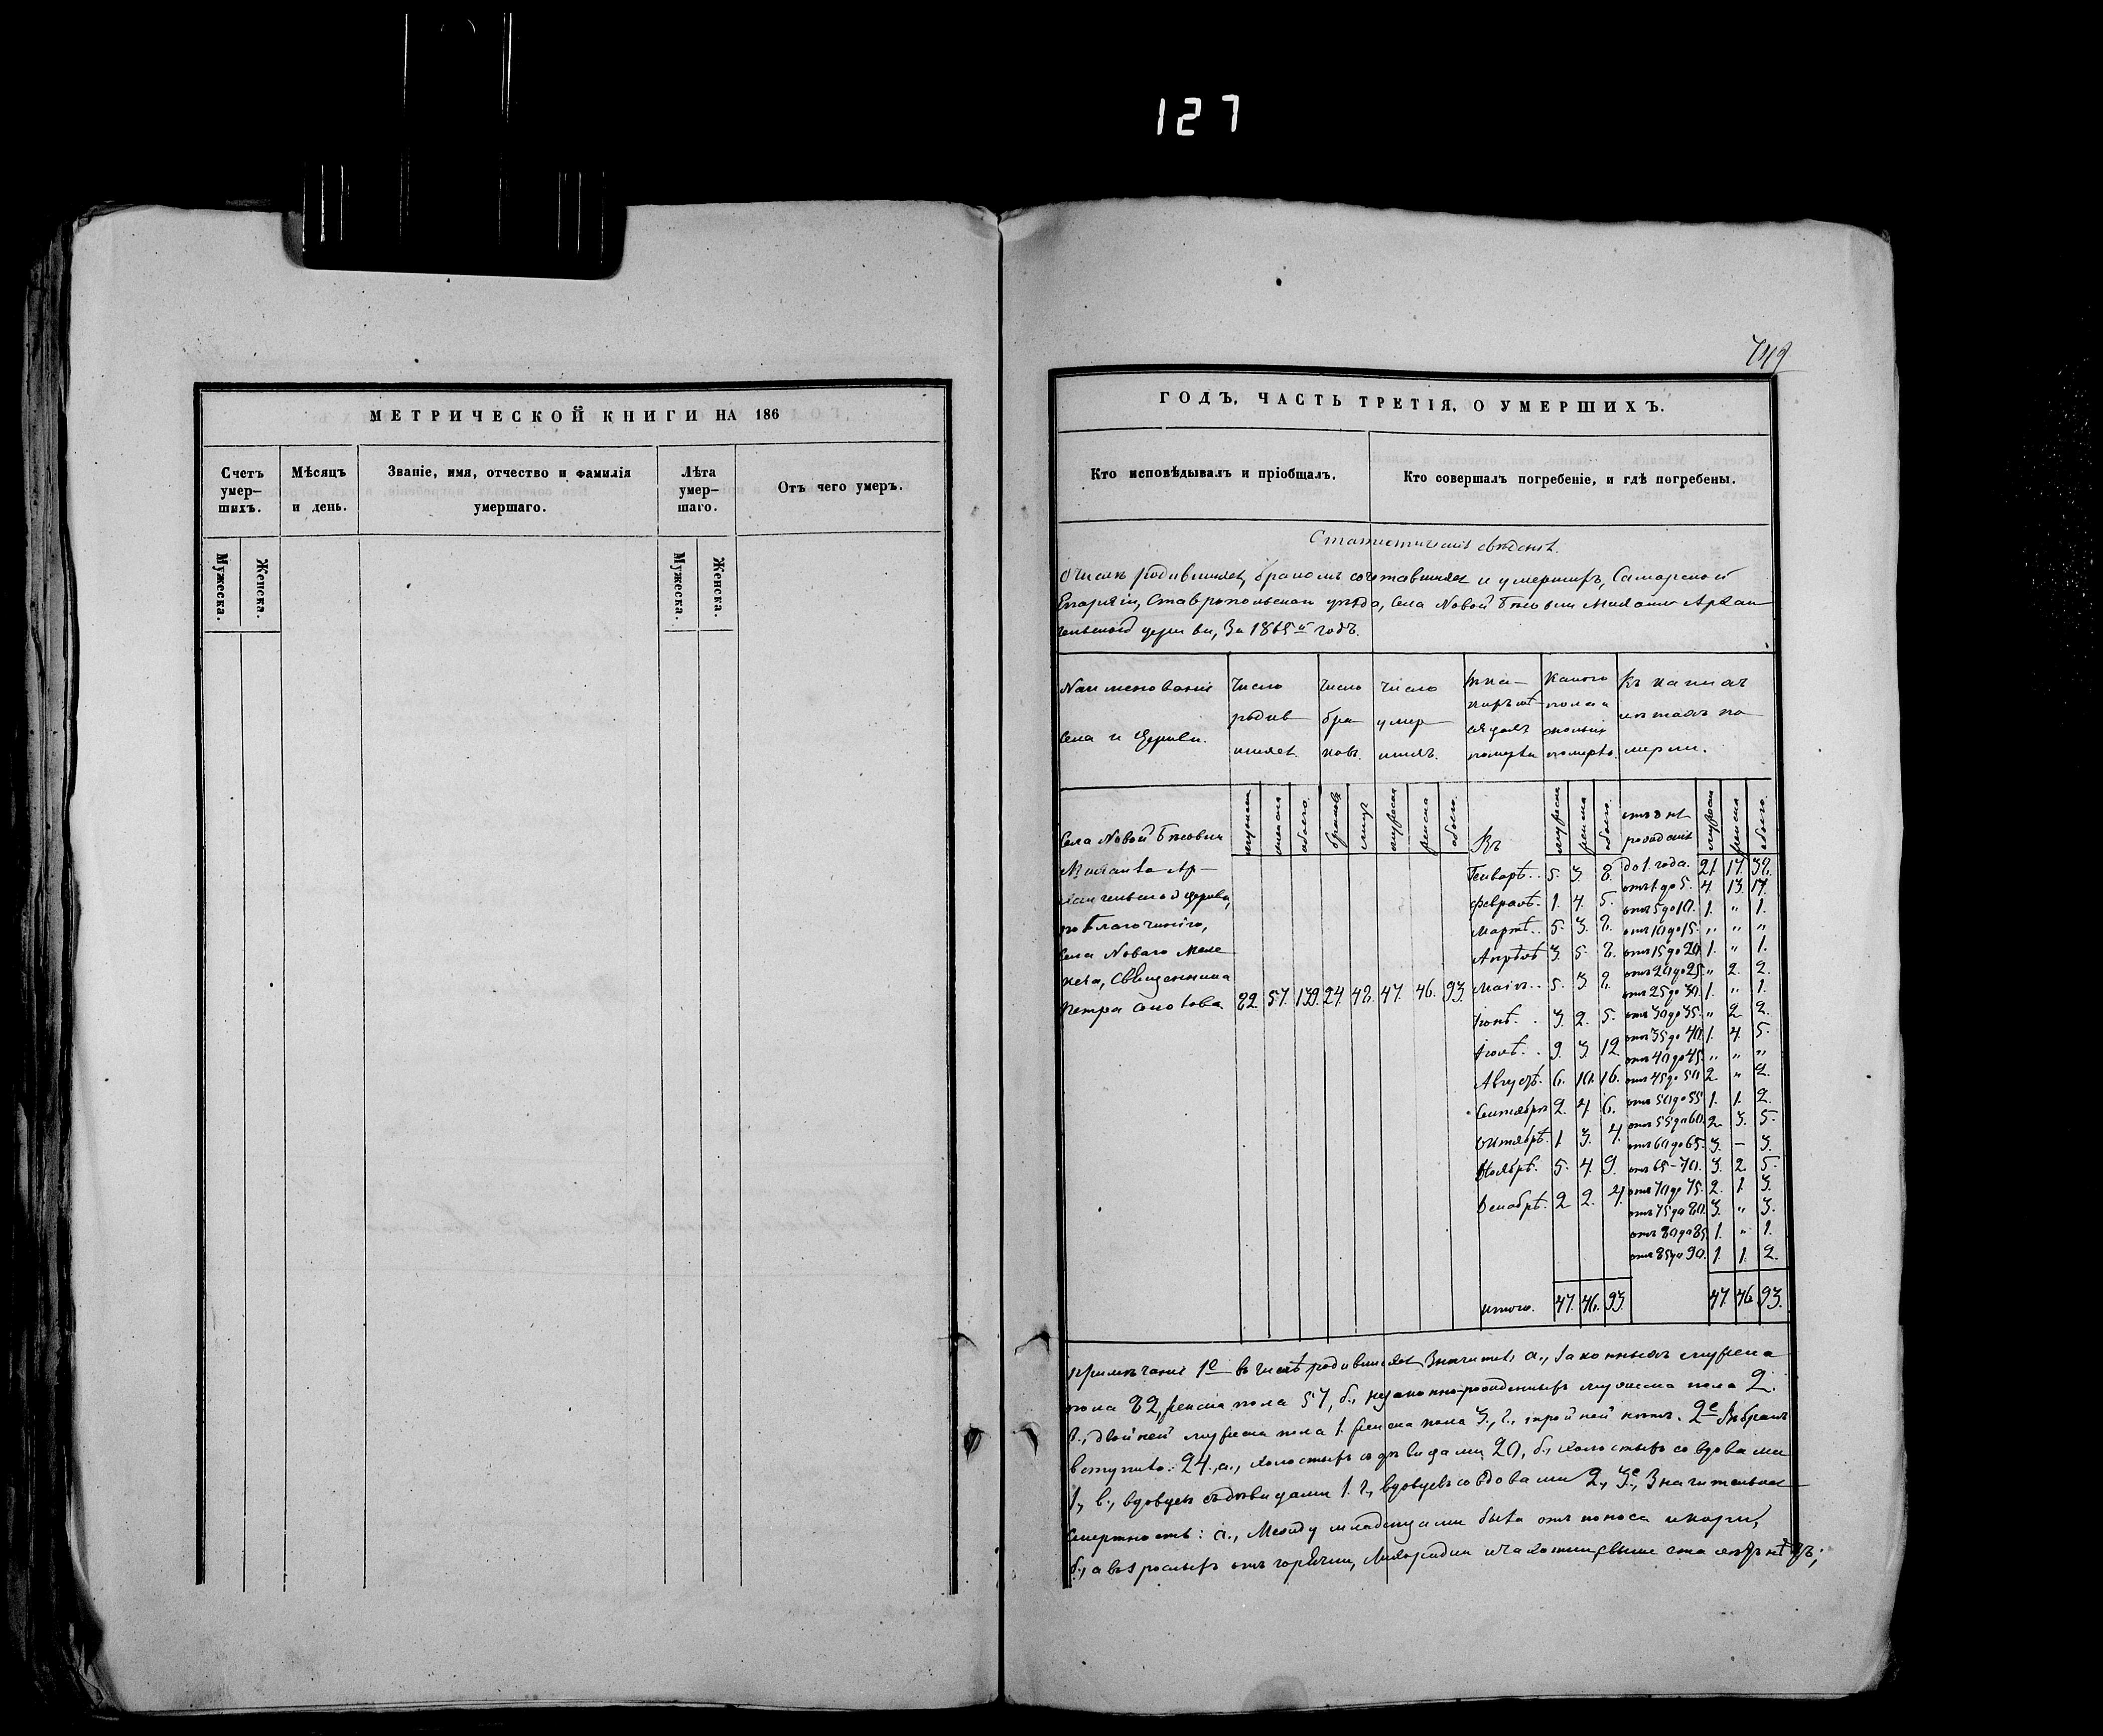 127
749
МЕТРИЧЕСКОЙ КНИГИ НА 186
Счетъ умер-шихъ.
Мѣсяцъ и день.
Званіе, имя, отчество и фамилія умершаго.
Лѣта умер-шаго.
Отъ чего умеръ.
Мужеска.
Женска.
Мужеска.
Женска.
ГОДЪ, ЧАСТЬ ТРЕТІЯ, О УМЕРШИХЪ.
Кто исповѣдывалъ и пріобщалъ.
Кто совершалъ погребеніе, и гдѣ погребены.
Статистическія свѣденія.
О числѣ родившихся, бракомъ сочетавшихся и умершихъ, Самарской
Епархіи, Ставропольскаго уѣзда, села Новой Бѣсовки Михаило Архан-
гельской церкви, за 1865й годъ.
Наименованіе села и церкви.
Число родив-шихся.
Число бра-ковъ.
Число умер-шихъ.
Какого пола и сколько померло.
Въ какихъ лѣтахъ по-мерли.
мужска женска обоего. браковъ лицъ мужеска женска обоего. Въ мужеска женска обоего. отъ дня рожденія мужеска женска обоего.
Села Новой Бѣсовки
Михаило Ар-
хангельской церкви,
по благочинію,
села Новаго
священника
Петра
82. 57. 139. 24. 48. 47. 46. 93.
Генварѣ. 5. 3. 8.
Февралѣ. 1. 4. 5.
Мартѣ. 5. 3. 8.
Апрѣлѣ 3. 5. 8.
Маіѣ. 5. 3. 8.
Іюнѣ. 3. 2. 5.
Іюлѣ. 9. 3. 12.
Августѣ. 6. 10. 16.
Сентябрѣ 2. 4. 6.
Октябрѣ. 1. 3. 4.
Ноябрѣ. 5. 4. 9.
Декабрѣ. 2. 2. 4.
итого. 47. 46. 93.
до 1. года. 21. 17. 38.
отъ 1 до 5. 4. 13. 17.
отъ 5 до 10. 1. " 1.
отъ 10 до 15. " " "
отъ 15 до 20. 1. " 1.
отъ 20 до 25. " 2. 2.
отъ 25 до 30. 1. " 1.
отъ 30 до 35. " 2. 2.
отъ 35 до 40. 1. 4. 5.
отъ 40 до 45. " " "
отъ 45 до 50. 2. " 2.
отъ 50 до 55. 1. 1. 2.
отъ 55 до 60. 2. 3. 5.
отъ 60 до 65. 3. – 3.
отъ 65 – 70. 3. 2. 5.
отъ 70 до 75. 2. 1. 3.
отъ 75 до 80. 3. " 3.
отъ 80 до 85. 1. " 1.
отъ 85 до 90. 1. 1. 2.
47. 46. 93.
Примѣчаніе 1е въ числѣ родившихся значится, а., законныхъ мужеска
пола 82, женска пола 57, б., незаконно-рожденныхъ мужеска пола 2.
в., двойней мужеска пола 1. женска пола 3., г., тройней нѣтъ. 2е Въ бракъ
вступило: 24., а., холостыхъ съ дѣвицами 20, б., холостыхъ со вдовами
1., в., вдовцевъ съ дѣвицами 1. г., вдовцевъ со вдовами 2., 3е, Значительная
смертность: а., Между младенцами была отъ поноса и кори,
б., а взрослыхъ отъ горячки, лихорадки и чахотки, свыше ста лѣтъ нѣтъ;